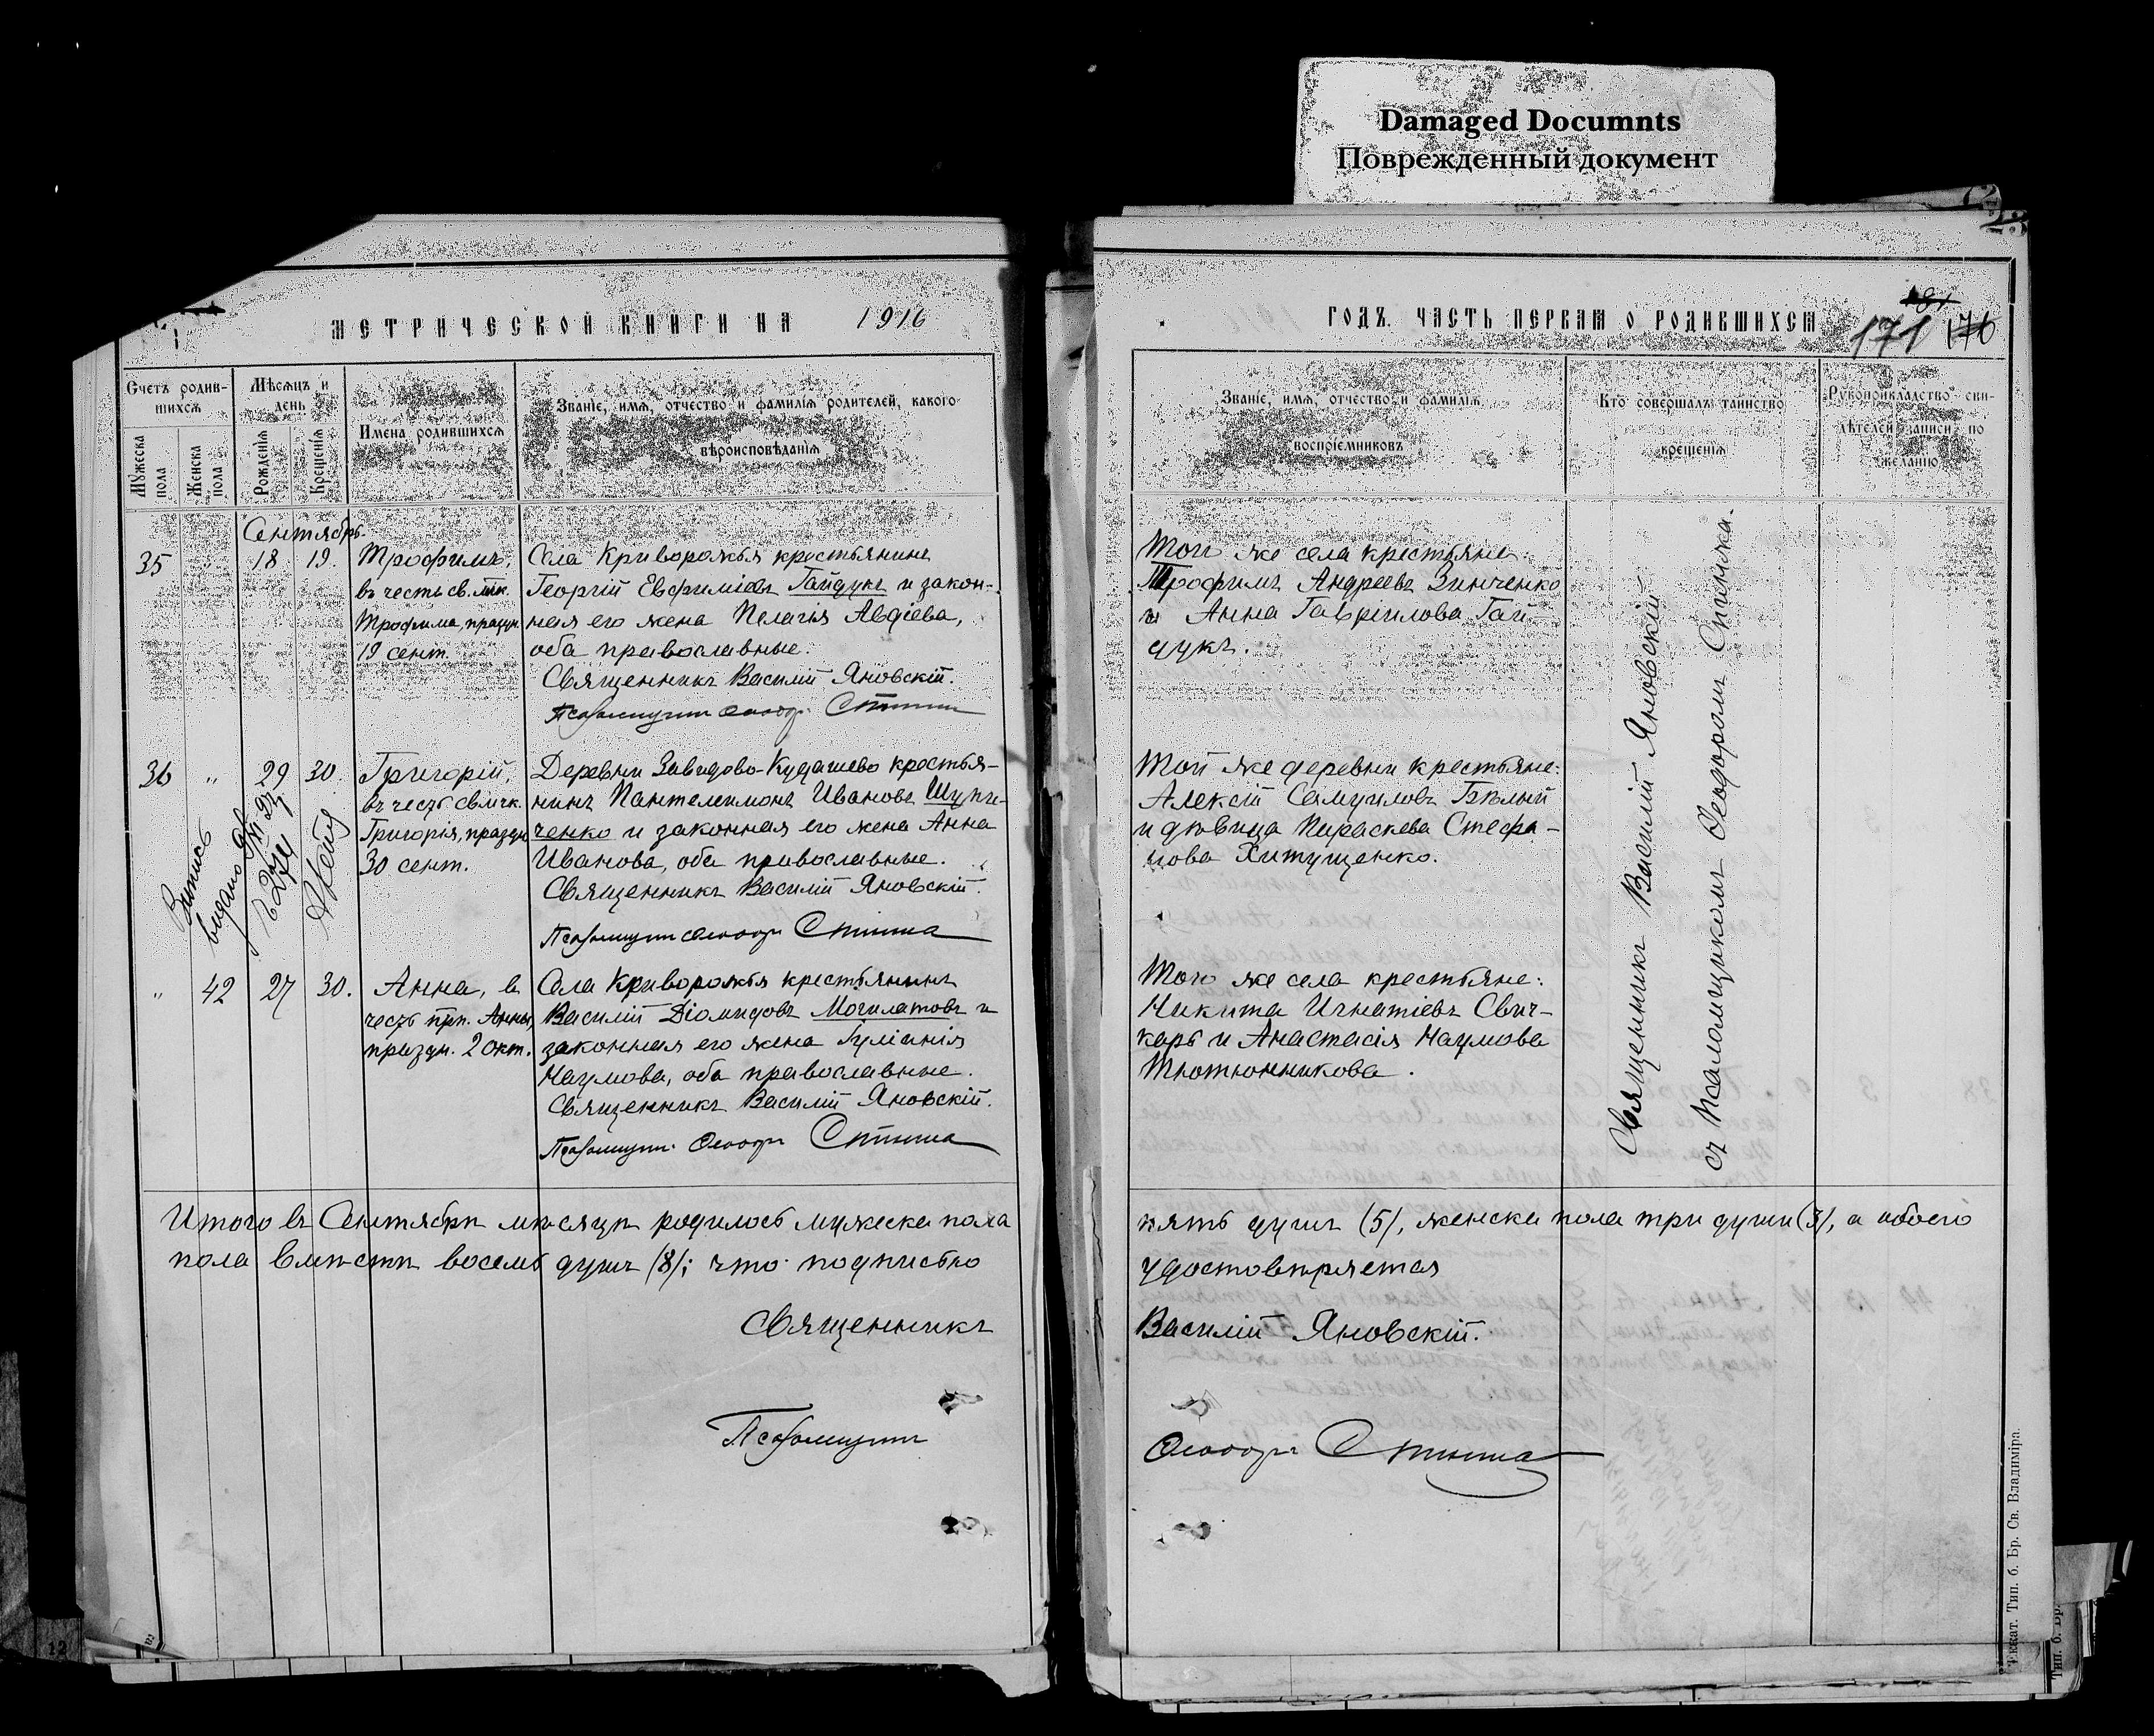 Damaged Documnts
Поврежденный документ
МЕТРИЧЕСКОЙ КНИГИ НА 1916
Счетъ родив-
шихся
Мѣсяцъ и
день
Мужеска
пола
Женска
пола
Рожденія
Крещенія
Имена родившихся
Званіе, имя, отчество и фамилія родителей, какого
вѣроисповѣданія
Сентябрь.
35 " 18 19.
Трофимъ,
въ честь св. мчк.
Трофима, праздн.
19 сент.
Села Криворожья крестьянинъ
Георгій Евфиміевъ Гайдукъ и закон-
ная его жена Пелагія Авдіева,
оба православные.
Священникъ Василій Яновскій.
Псаломщикъ Ѳеодоръ Спинка
36 " 29 30.
Григорій,
въ честь свмчк.
Григорія, праздн.
30 сент.
Деревни Завидово-Кудашево крестья-
нинъ Пантелеимонъ Ивановъ Шупи-
ченко и законная его жена Анна
Иванова, оба православные.
Священникъ Василій Яновскій.
Псаломщикъ Ѳеодоръ Спинка
видано
" 42 27 30.
Анна, въ
честь прп. Анны,
праздн. 2 окт.
Села Криворожья крестьянинъ
Василій Діомидовъ Могилатовъ и
законная его жена Іуліанія
Наумова, оба православные.
Священникъ Василій Яновскій.
Псаломщикъ Ѳеодоръ Спинка
Итого въ Сентябрѣ мѣсяцѣ родилось мужеска пола
пола вмѣстѣ восемь душъ (8); что подписью
Священникъ
Псаломщикъ
ГОДЪ. ЧАСТЬ ПЕРВАЯ О РОДИВШИХСЯ
181
171 176
Званіе, имя, отчество и фамилія
воспріемниковъ
Кто совершалъ таинство
крещенія
Рукоприкладство сви-
дѣтелей записи по
желанію
Того же села крестьяне:
Трофимъ Андреевъ Зинченко
и Анна Гавріилова Гай-
дукъ.
Той же деревни крестьяне:
Алексій Самуиловъ Бѣлый
и дѣвица Параскева Стефа-
нова Хитущенко.
Того же села крестьяне:
Никита Игнатіевъ Свич-
карь и Анастасія Наумова
Тютюнникова.
Священникъ Василій Яновскій
съ Псаломщикомъ Ѳеодоромъ Спинка.
пять душъ (5), женска пола три души (3), а обоего
удостовѣряется
Василій Яновскій.
Ѳеодоръ Спинка
Еккат. Тип. б. Бр. Св. Владиміра.